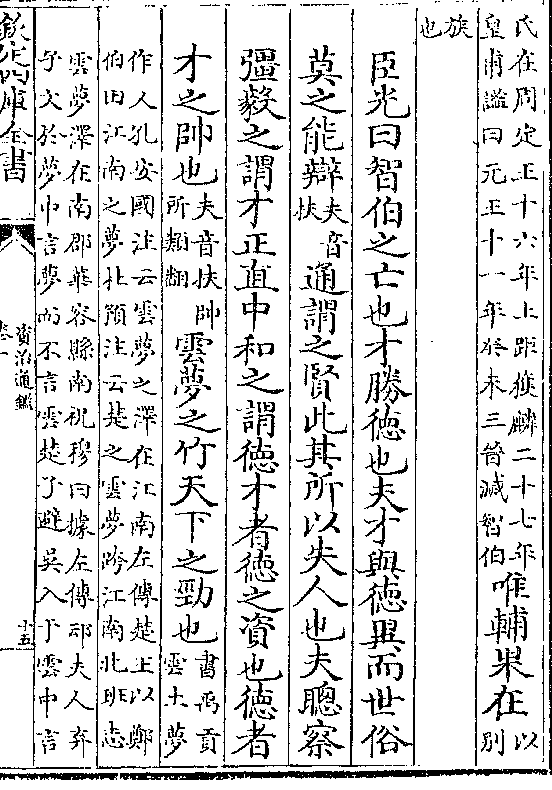 氏在周定王十六年上距獲麟二十七年
皇甫謐曰元王十一年癸未三晉滅智伯
唯輔果在
以
別
族
也
臣光曰智伯之亡也才勝徳也夫才與徳異而世俗
莫之能辯
夫音
扶
通謂之賢此其所以失人也夫聰察
彊毅之謂才正直中和之謂徳才者徳之資也徳者
才之帥也
夫音扶帥
所類翻
雲夢之竹天下之勁也
書禹貢
雲土夢
作乂孔安國注云雲夢之澤在江南左傳楚王以鄭
伯田江南之夢杜預注云楚之雲夢跨江南北班志
雲夢澤在南郡華容縣南祝穆曰據左傳䢵夫人弃
子文於夢中言夢而不言雲楚子避吳入于雲中言
欽定四庫全書
資治通鑑
卷一
十五